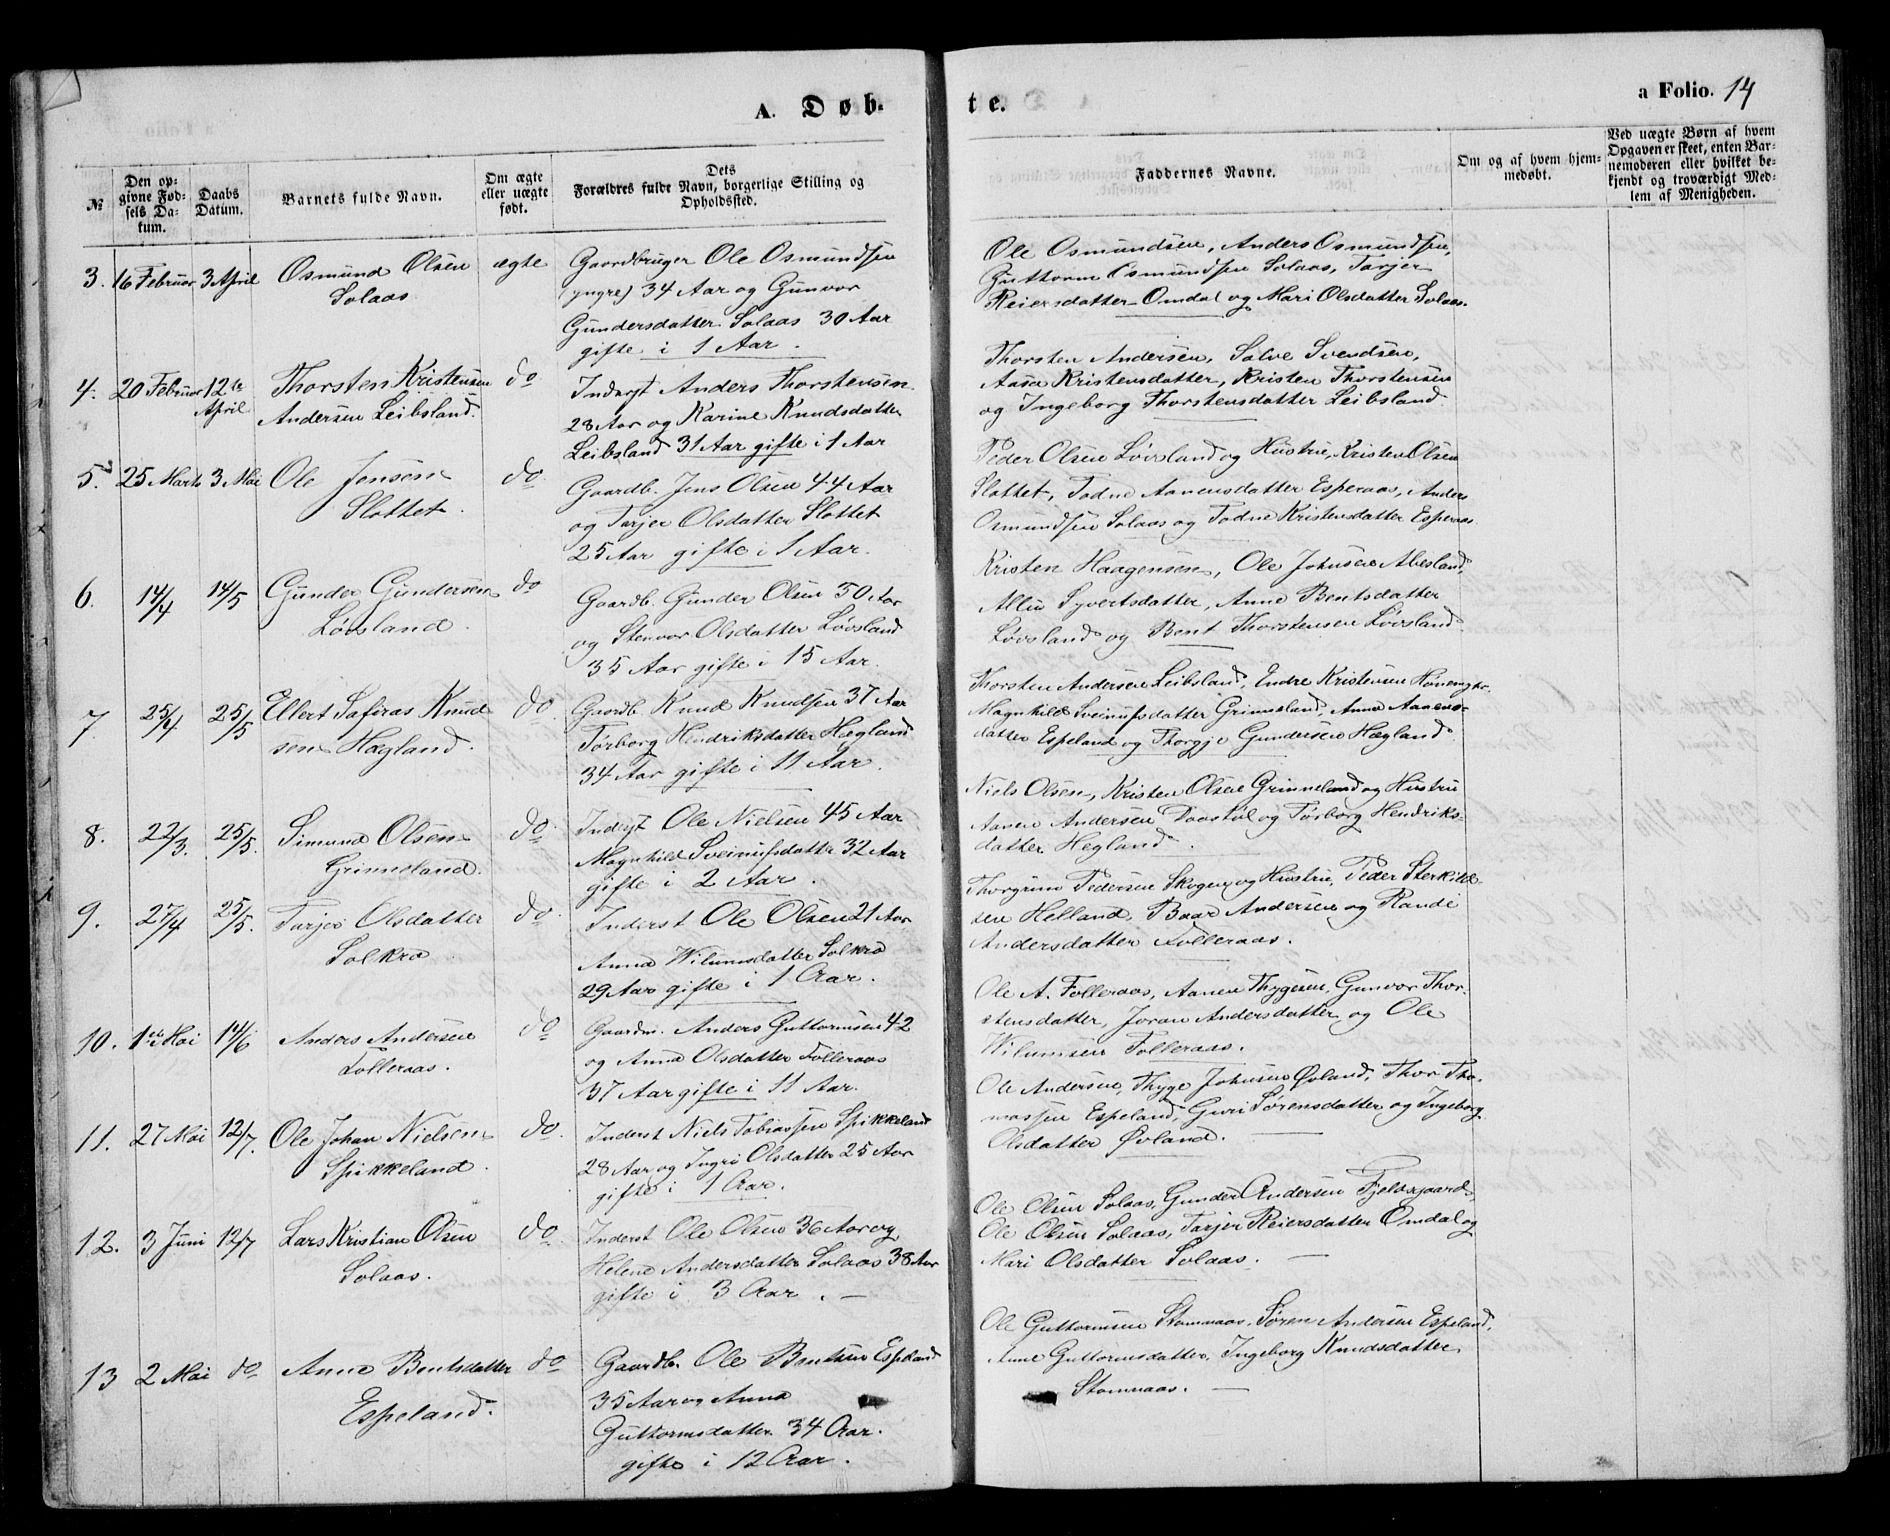 A. Døb-
te.
a Folio. 14
№
Den op-
givne Fød-
sels Da-
tum.
Daabs
Datum.
Barnets fulde Navn.
Om ægte
eller uægte
født.
Dets
Forældres fulde Navn, borgerlige Stilling og
Opholdssted.
Faddernes Navne.
Om og af hvem hjem-
medøbt.
Ved uægte Børn af hvem
Opgaven er skeet, enten Bar-
nemoderen eller hvilket be-
kjendt og troværdigt Med-
lem af Menigheden.
3. 16 Februar 3 April Osmund Olsen ægte
Solaas
Gaardbruger Ole Osmundsen
(yngre) 34 Aar og Gunvor
Gundersdatter Solaas 30 Aar
gifte i 1 Aar.
Ole Osmundsen, Anders Osmundsen,
Guttorm Osmundsen Solaas, Tarjer
Reiersdatter Omdal og Mari Olsdatter Solaas.
4. 20 Februar 12te April Thorsten Kristensen do
Andersen Leibsland.
Inderst Anders Thorstensen
28 Aar og Karine Knudsdatter
Leibsland 31 Aar gifte i 1 Aar
Thorsten Andersen, Salve Svendsen,
Aasa Kristensdatter, Kristen Thorstensen
og Ingeborg Thorstensdatter Leibsland
5. 25 Marts 3 Mai Ole Jensen do
Slottet.
Gaardb. Jens Olsen 44 Aar
og Tarjer Olsdatter Slottet
25 Aar gifte i 1 Aar.
Peder Olsen Lövsland og Hustru, Kristen Olsen
Slottet, Todne Aanensdatter Esperaas, Anders
Osmundsen Solaas og Todne Kristensdatter Esperaas
6. 14/4 14/5 Gunder Gundersen do
Lövsland.
Gaardb. Gunder Olsen 50 Aar
og Stenvor Olsdatter Lövsland
35 Aar gifte i 15 Aar.
Kristen Haagensen, Ole Johnsen Abesland,
Allie Syvertsdatter, Anne Bentsdatter
Lövsland og Bent Thorstensen Lövsland.
7. 25/4 25/5 Ellert Safiras Knud do
sen Hægland.
Gaardb. Knud Knudsen 37 Aar
Törborg Hendriksdatter Hægland
34 Aar gifte i 11 Aar.
Thorsten Andersen Leibsland, Endre Kristensen
Magnhild Sveinufsdatter Grimesland, Anna Aanens-
datter Espeland og Thorgje Gundersen Hægland
8. 22/3. 25/5. Simund Olsen do.
Grimeland.
Inderst Ole Nielsen 45 Aar
Magnhild Sveinufsdatter 32 Aar
gifte i 2 Aar.
Niels Olsen, Kristen Olsen Grimeland og Hustru
Aanen Andersen og Törborg Hendriks-
datter Hegland.
9. 27/4 25/5. Tarjer Olsdatter do.
Solkra
Inderst Ole Olsen 21 Aar
Anna Wilumsdatter Solkra
29 Aar gifte i 1 Aar.
Thorgrim Pedersen Skogen og Hustru, Peder Sterkild-
sen Helland, Baar Andersen og Rande
Andersdatter Folleraas.
10. 1ste Mai 14/6 Anders Andersen do
Folleraas.
Gaardm. Anders Guttormsen 42
og Anna Olsdatter Folleraas
37 Aar gifte i 11 Aar.
Ole A. Folleraas, Aanen Thygesen, Gunvor Thor-
stensdatter, Joran Andersdatter, og Ole
Wilumsen Folleraas.
11. 27 Mai 12/7. Ole Johan Nielsen do.
Spikkeland.
Inderst Niels Tobiassen Spikkeland
28 Aar og Ingri Olsdatter 25 Aar
gifte i 1 Aar.
Ole Andersen, Thyge Johnsen Øvland, Thor Tho-
massen Espeland, Guri Sörensdatter og Ingeborg
Olsdatter Øvland.
12. 3 Juni 12/7 Lars Kristian Olsen do
Solaas.
Inderst Ole Olsen 36 Aar og
Helene Andersdatter Solaas 38 Aar
gifte i 3 Aar.
Ole Olsen Solaas, Gunder Andersen Fjeldsgaard,
Ole Olsen Solaas, Tarjer Reiersdatter Omdal og
Mari Olsdatter Solaas.
13 2 Mai do Anna Bentsdatter do
Espeland.
Gaardb. Ole Bentsen Espeland
35 Aar og Anna
Guttormsdatter 34 Aar.
gifte i 12 Aar.
Ole Guttormsen Stomnaas, Sören Andersen Espeland,
Anne Guttormsdatter, Ingeborg Knudsdatter
Stomnaas.